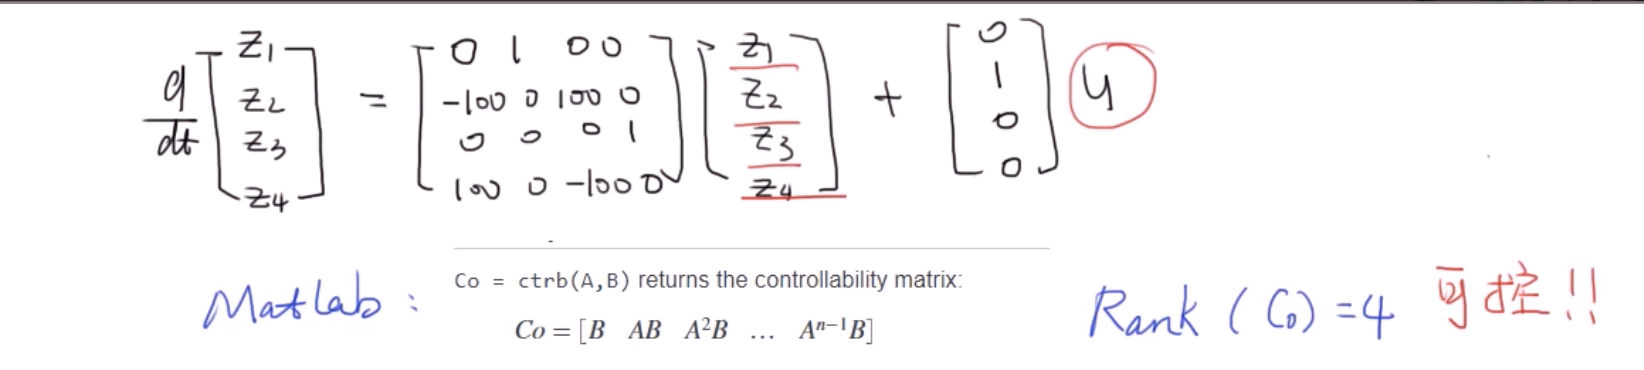 d/dt [z1 z2 z3 z4] = [0 1 0 0; -100 0 100 0; 0 0 0 1; 100 0 -100 0] [z1 z2 z3 z4] + [0 1 0 0] u
Matlab : Co = ctrb(A,B) returns the controllability matrix:
Co = [B AB A²B … Aⁿ⁻¹B]
Rank (Co) = 4 可控!!